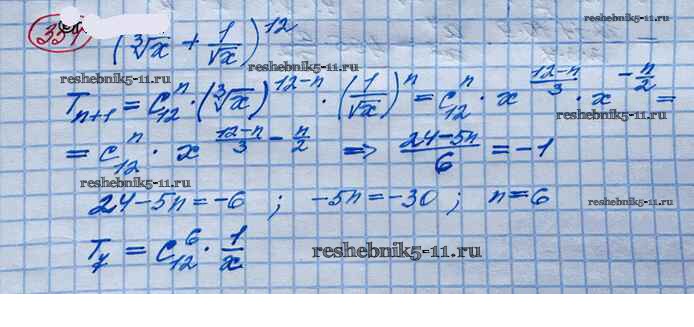 334 (∛x + 1/√x)^12
reshebnik5-11.ru
reshebnik5-11.ru reshebnik5-11.ru
T_{n+1} = C_{12}^{n} · (∛x)^{12-n} · (1/√x)^{n} = C_{12}^{n} · x^{(12-n)/3} · x^{-n/2} =
reshebnik5-11.ru
= C_{12}^{n} · x^{(12-n)/3 - n/2} ⇒ (24-5n)/6 = -1
reshebnik5-11.ru
24-5n=-6 ; -5n=-30 ; n=6
reshebnik5-11.ru
T_7 = C_{12}^{6} · 1/x
reshebnik5-11.ru